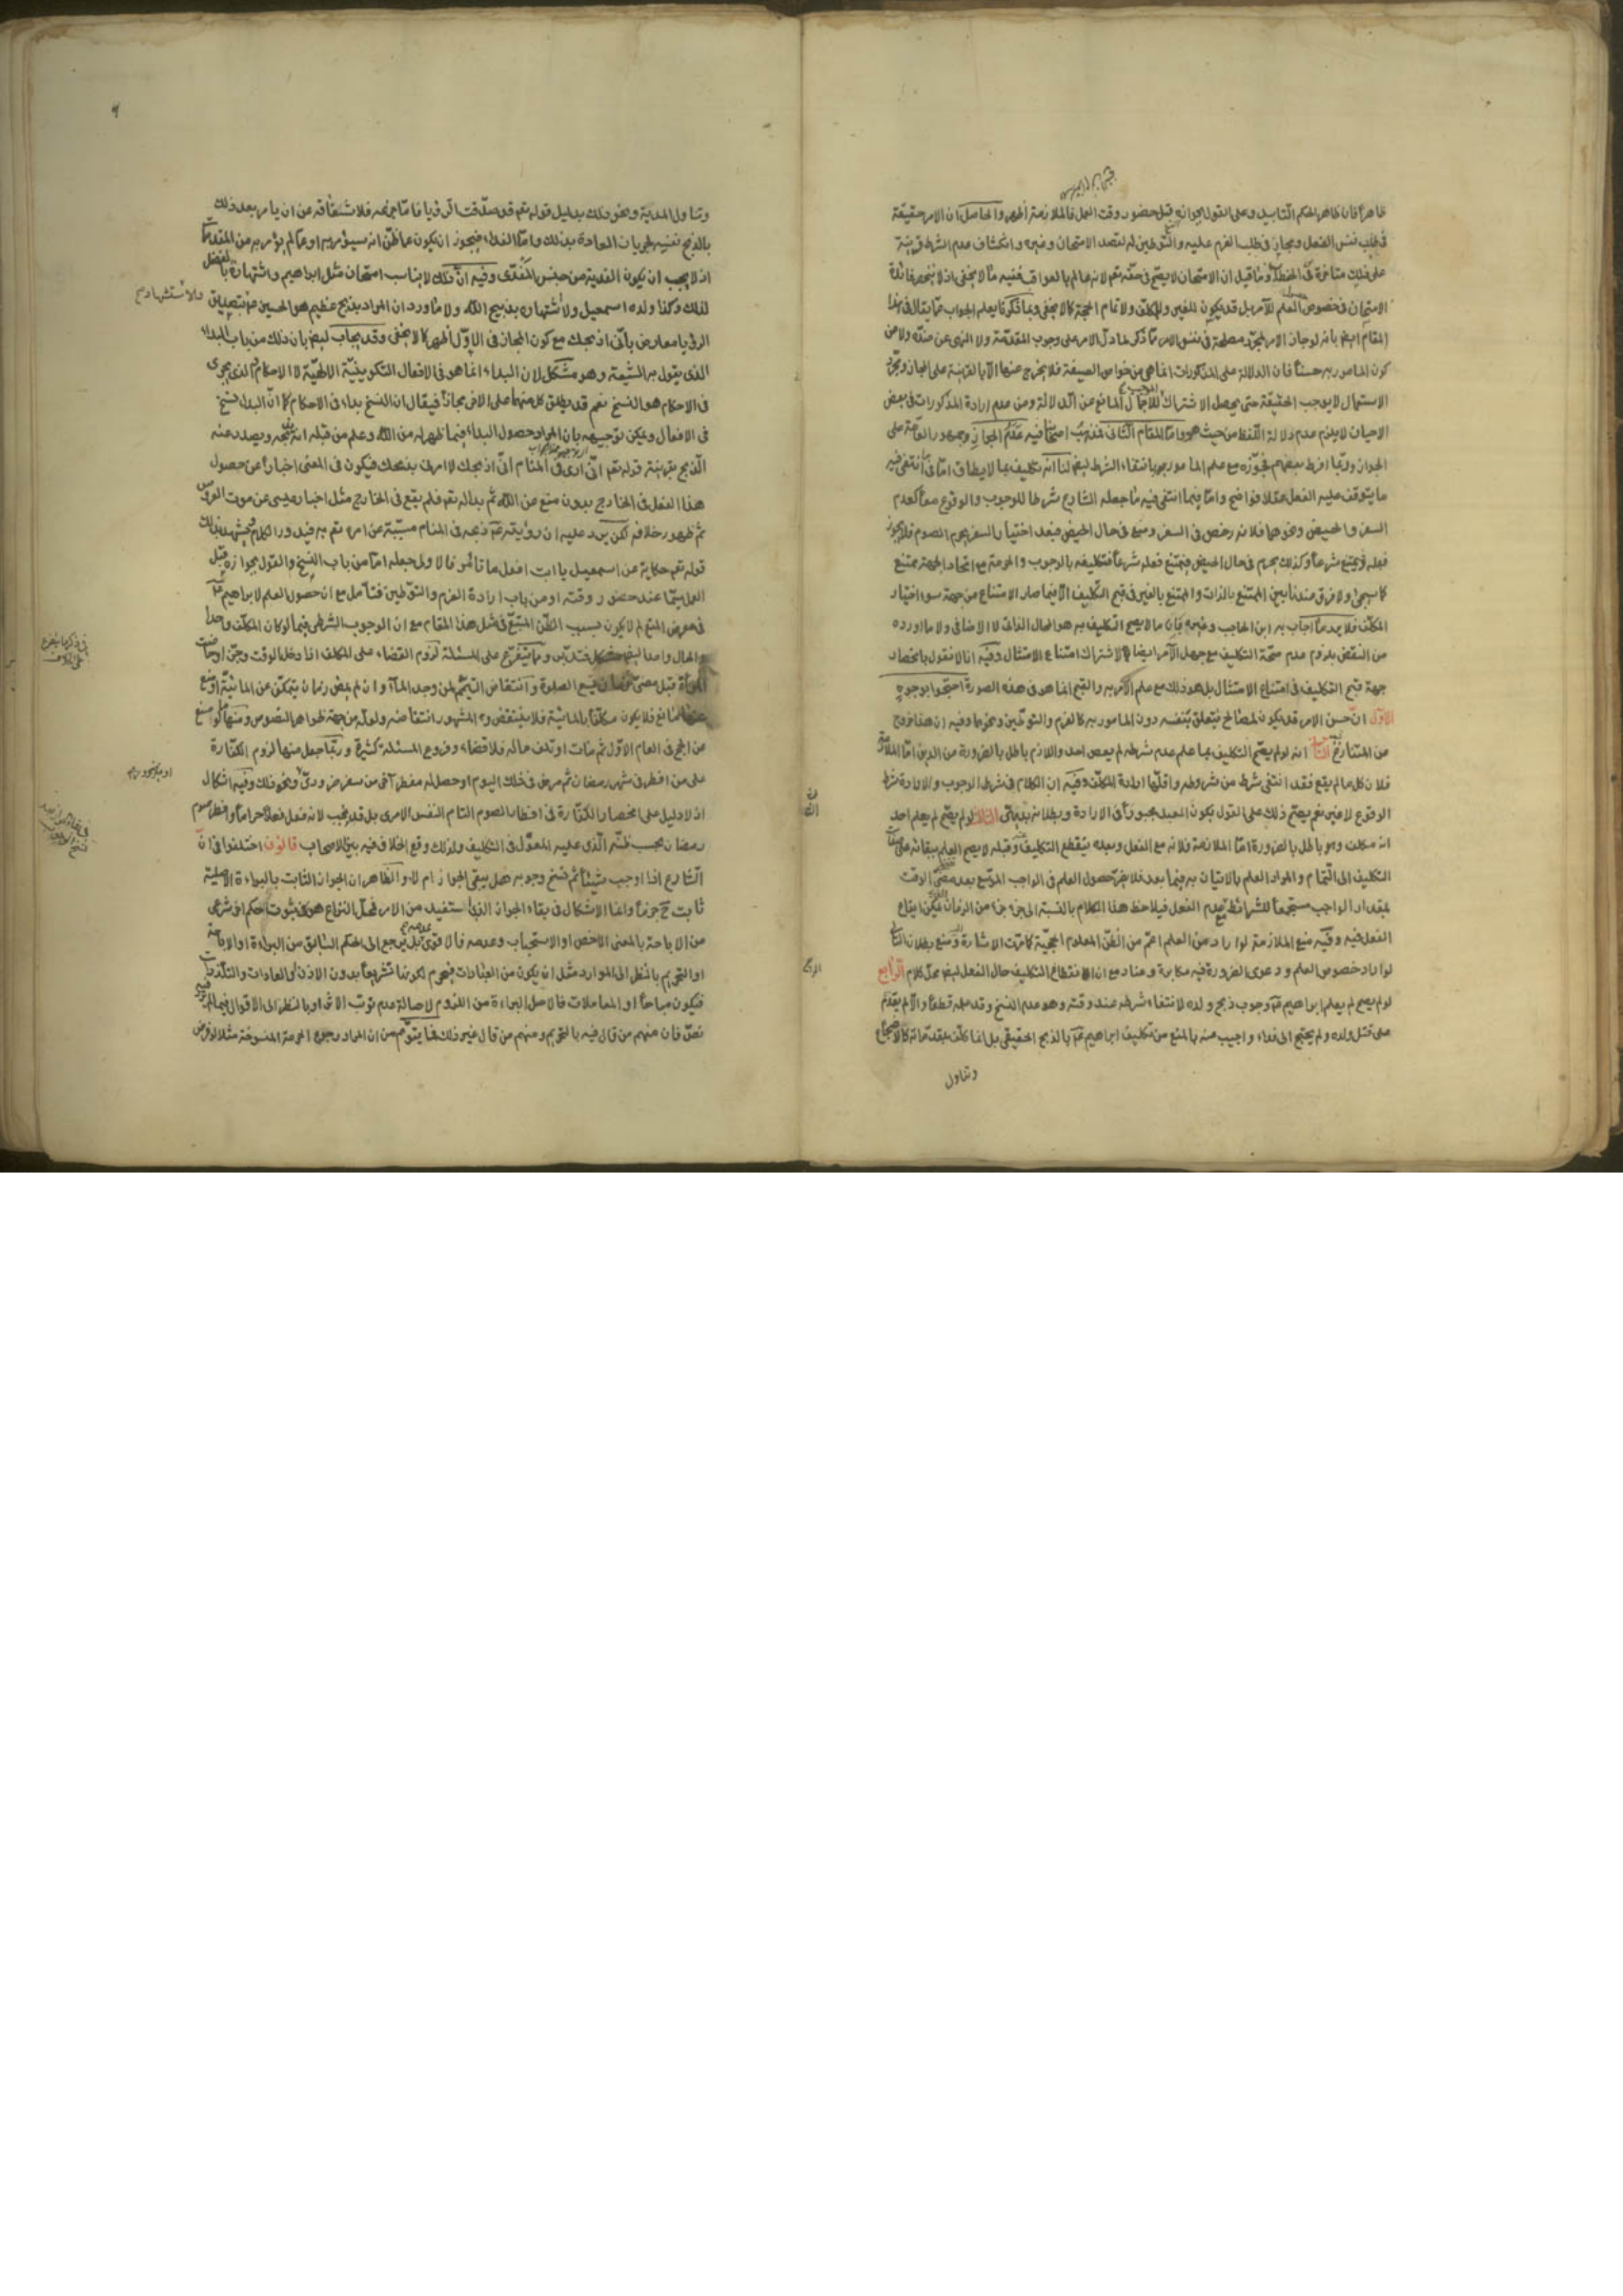 ظاهرا فان ظاهر الحكم التأبيد وعلى القول بجوازه قبل حضور وقت العمل فالملازمة أظهر والحاصل ان الامر حقيقة
في طلب نفس الفعل ومجاز في طلب العزم عليه والتوطين له لقصد الامتحان وغيره وانكشاف عدم الشرط قرينة
على ذلك متأخرة عن الخطاب وما قيل ان الامتحان لا يصح في حقه تعم لانه عالم بالعواقب ففيه ما لا يخفى اذ لا ينحصر فائدة
الامتحان في خصوص العلم للآمر بل قد يكون للغير وللمكلف ولاتمام الحجة كما لا يخفى وبما ذكرنا يعلم الجواب عما يقال في هذا
المقام ايضا بانه لو جاز الامر لمجرد مصلحة في نفس الامر لما ذكر لما دل الامر على وجوب المقدمة ولا النهى عن ضده ولا على
كون المامور به حسنا فان الدلالة على المذكورات انما هي من خواص الصيغة فلا يخرج عنها الا بالقرينة على المجاز ومجرد
الاستعمال لا يوجب الحقيقة حتى يحصل الاشتراك الموجب للاجمال المانع عن الدلالة ومن عدم ارادة المذكورات في بعض
الاحيان لا يلزم عدم دلالة اللفظ من حيث هو واما المقام الثاني فمذهب اصحابنا فيه عدم الجواز وجمهور العامة على
الجواز وربما افرط بعضهم فجوزه مع علم المامور به بانتفاء الشرط ايضا لنا انه تكليف بما لا يطاق اما في ما انتفى فيه
ما يتوقف عليه الفعل عقلا فواضح واما فيما انتفى فيه ما جعله الشارع شرطا للوجوب والوقوع معا كعدم
السفر والحيض ونحوهما فلانه رخص في السفر ومنع في حال الحيض فبعد اختيار السفر يحرم الصوم فلا يجوز
فعله ويمتنع شرعا وكذلك يحرم في حال الحيض فيمتنع فعله شرعا فتكليفه بالوجوب والحرمة مع اتحاد الجهة ممتنع
كما سيجئ ولا فرق عندنا بين الممتنع بالذات والممتنع بالغير في قبح التكليف الا فيما صار الامتناع من جهة سوء اختيار
المكلف فلا يرد ما اجاب به ابن الحاجب وغيره فان ما لا يصح التكليف به هو المحال الذاتي لا الاضافي ولا ما اورده
من النقض بلزوم عدم صحة التكليف مع جهل الآمر ايضا لاشتراك امتناع الامتثال وفيه انا لا نقول بانحصار
جهة قبح التكليف في امتناع الامتثال بل هو ذلك مع علم الآمر به والقبح انما هو في هذه الصورة احتجوا بوجوه
الاول ان حسن الامر قد يكون لمصالح يتعلق بنفسه دون المامور به كالعزم والتوطين ونحوهما وفيه ان هذا خروج
من المتنازع الثاني انه لو لم يصح التكليف بما علم عدم شرطه لم يعص احد واللازم باطل بالضرورة من الدين اما الملازمة
فلان كل ما لم يقع فقد انتفى شرط من شروطه واقلها ارادة المكلف وفيه ان الكلام في شرط الوجوب والارادة شرط
الوقوع لا غير نعم يصح ذلك على القول بكون العبد مجبورا في الارادة وبطلانه بديهي الثالث لو لم يصح لم يعلم احد
انه مكلف وهو باطل بالضرورة اما الملازمة فلانه مع الفعل وبعده ينقطع التكليف وقبله لا يصح العلم ببقائه على صفات
التكليف الى التمام والمراد العلم بالاتيان به فيما بعد فلا يضر حصول العلم في الواجب الموسع بعد مضى الوقت
بمقدار الواجب مستجمعا للشرائط مع عدم الفعل فيلاحظ هذا الكلام بالنسبة الى جزء جزء من الزمان يمكن ايقاع
الفعل فيه وفيه منع الملازمة لو اراد من العلم اعم من الظن المعلوم الحجية كما مرت الاشارة ومنع بطلان التالي
لو اراد خصوص العلم ودعوى الضرورة فيه مكابرة وعناد مع ان انقطاع التكليف حال الفعل ايضا محل كلام الرابع
لو لم يصح لم يعلم ابراهيم ع وجوب ذبح ولده لانتفاء شرطه عند وقته وهو عدم النسخ وقد علمه قطعا والا لم يقدم
على قتل ولده ولم يحتج الى فداء واجيب عنه بالمنع من تكليف ابراهيم ع بالذبح الحقيقي بل انما كلف بمقدماته كالاضجاع
وتناول
وتناول المدية ونحو ذلك بدليل قوله تعم قد صدقت الرؤيا واما جزعه فلاشفاقه عن ان يامر بعد ذلك
بالذبح نفسه لجريان العادة بذلك واما الفداء فيجوز ان يكون عما ظن انه سيؤمر به او عما لم يؤمر به من المقدمات
اذ لا يجب ان يكون الفدية من جنس المفدى وفيه ان ذلك لا يناسب امتحان مثل ابراهيم واشتهاره بالفضل
لذلك وكذا ولده اسمعيل ولا اشتهاره بذبيح الله ولا ما ورد ان المراد بذبح عظيم هو الحسين ع وتصديق
الرؤيا معارض باني اذبحك مع كون المجاز في الاول أظهر كما لا يخفى وقد يجاب ايضا بان ذلك من باب البداء
الذي يقول به الشيعة وهو مشكل لان البداء انما هو في الافعال التكوينية الالهية لا الاحكام والذي يجرى
في الاحكام هو النسخ نعم قد يطلق كل منهما على الاخر مجازا فيقال ان النسخ بداء في الاحكام كما ان البداء نسخ
في الافعال ويمكن توجيهه بان المراد حصول البداء فيما ظهر له من الله وعلم من قبله انه يذبحه ويصدر عنه
الذبح بقرينة قوله تعم اني ارى في المنام اني اذبحك لا امرت بذبحك فيكون في المعنى اخبارا عن حصول
هذا الفعل في الخارج بدون منع عن الله ثم بدا له تعم فلم يقع في الخارج مثل اخبار عيسى عن موت العروس
ثم ظهور خلافه لكن يرد عليه ان رؤيته ع ذبحه في المنام مسببة عن امره تعم به فيدور الكلام ويشهد بذلك
قوله تعم حكاية عن اسمعيل يا ابت افعل ما تؤمر فالاولى جعله اما من باب النسخ والقول بجوازه قبل
العمل سيما عند حضور وقته او من باب ارادة العزم والتوطين فتأمل مع ان حصول العلم لابراهيم ع
في معرض المنع لم لا يكون بسبب الظن المتبع في مثل هذا المقام مع ان الوجوب الشرطي فيما لو كان المكلف واحدا
والحال واحدا ايضا مشكل فتدبر ومما يتفرع على المسئلة لزوم القضاء على المكلف اذا دخل الوقت وجن او حاضت
المراة قبل مضى زمان يسع الصلوة وانتقاض التيمم لمن وجد الماء وان لم يمض زمان يتمكن عن المائية او منع
عنها مانع فلا يكون مكلفا بالمائية فلا ينتقض والمشهور انتقاضه ولعله من جهة ظواهر النصوص ومنها ما لو منع
من الحج في العام الاول ثم مات او تلف ماله فلا قضاء وفروع المسئلة كثيرة وربما جعل منها لزوم الكفارة
على من افطر في شهر رمضان ثم مرض في ذلك اليوم او حصل له مفطر آخر من سفر ضروري ونحو ذلك وفيه اشكال
اذ لا دليل على انحصار الكفارة في افطار الصوم التام النفس الامرى بل قد يجب لانه فعل فعلا حراما وافطر صوم
رمضان بحسب ظنه الذي عليه المعول في التكليف ولذلك وقع الخلاف فيه بين الاصحاب قانون اختلفوا في ان
الشارع اذا اوجب شيئا ثم نسخ وجوبه هل يبقى الجواز ام لا والظاهر ان الجواز الثابت بالبراءة الاصلية
ثابت ح جزما وانما الاشكال في بقاء الجواز الذي استفيد من الامر فمحل النزاع هو في ثبوت حكم اخر شرعي
من الاباحة بالمعنى الاخص او الاستحباب وعدمه فالاقوى عدمه بل يرجع الى الحكم السابق من البراءة او الاباحة
او التحريم بالنظر الى الموارد مثل ان يكون من العبادات فيحرم لكونها تشريعا بدون الاذن او العادات والتلذذات
فيكون مباحا او المعاملات فالاصل البراءة من اللزوم لاصالة عدم ترتب الاثر او بالنظر الى الاقوال فيما لم يرد فيه
نص فان منهم من قال فيه بالتحريم ومنهم من قال غير ذلك فما يتوهم من ان المراد رجوع الحرمة المنسوخة مثلا لو فرض
والاستشهاد